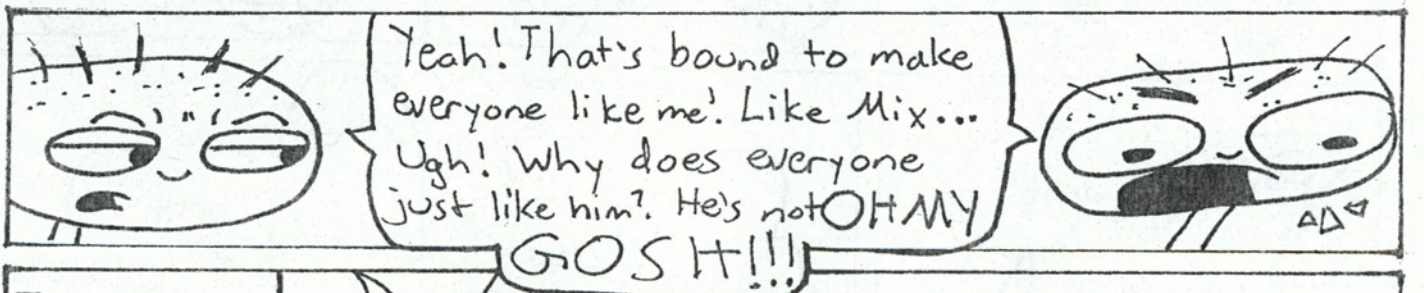 Yeah! That's bound to make
everyone like me! Like Mix...
Ugh! Why does everyone
just like him? He's not OH MY
GOSH!!!